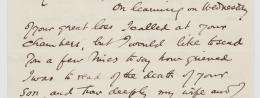 On learning on Wednesday
of your great loss I called at your
Chambers, but I would like to send
you a few lines to say how grieved
I was to read of the death of your
Son and how deeply my wife and I